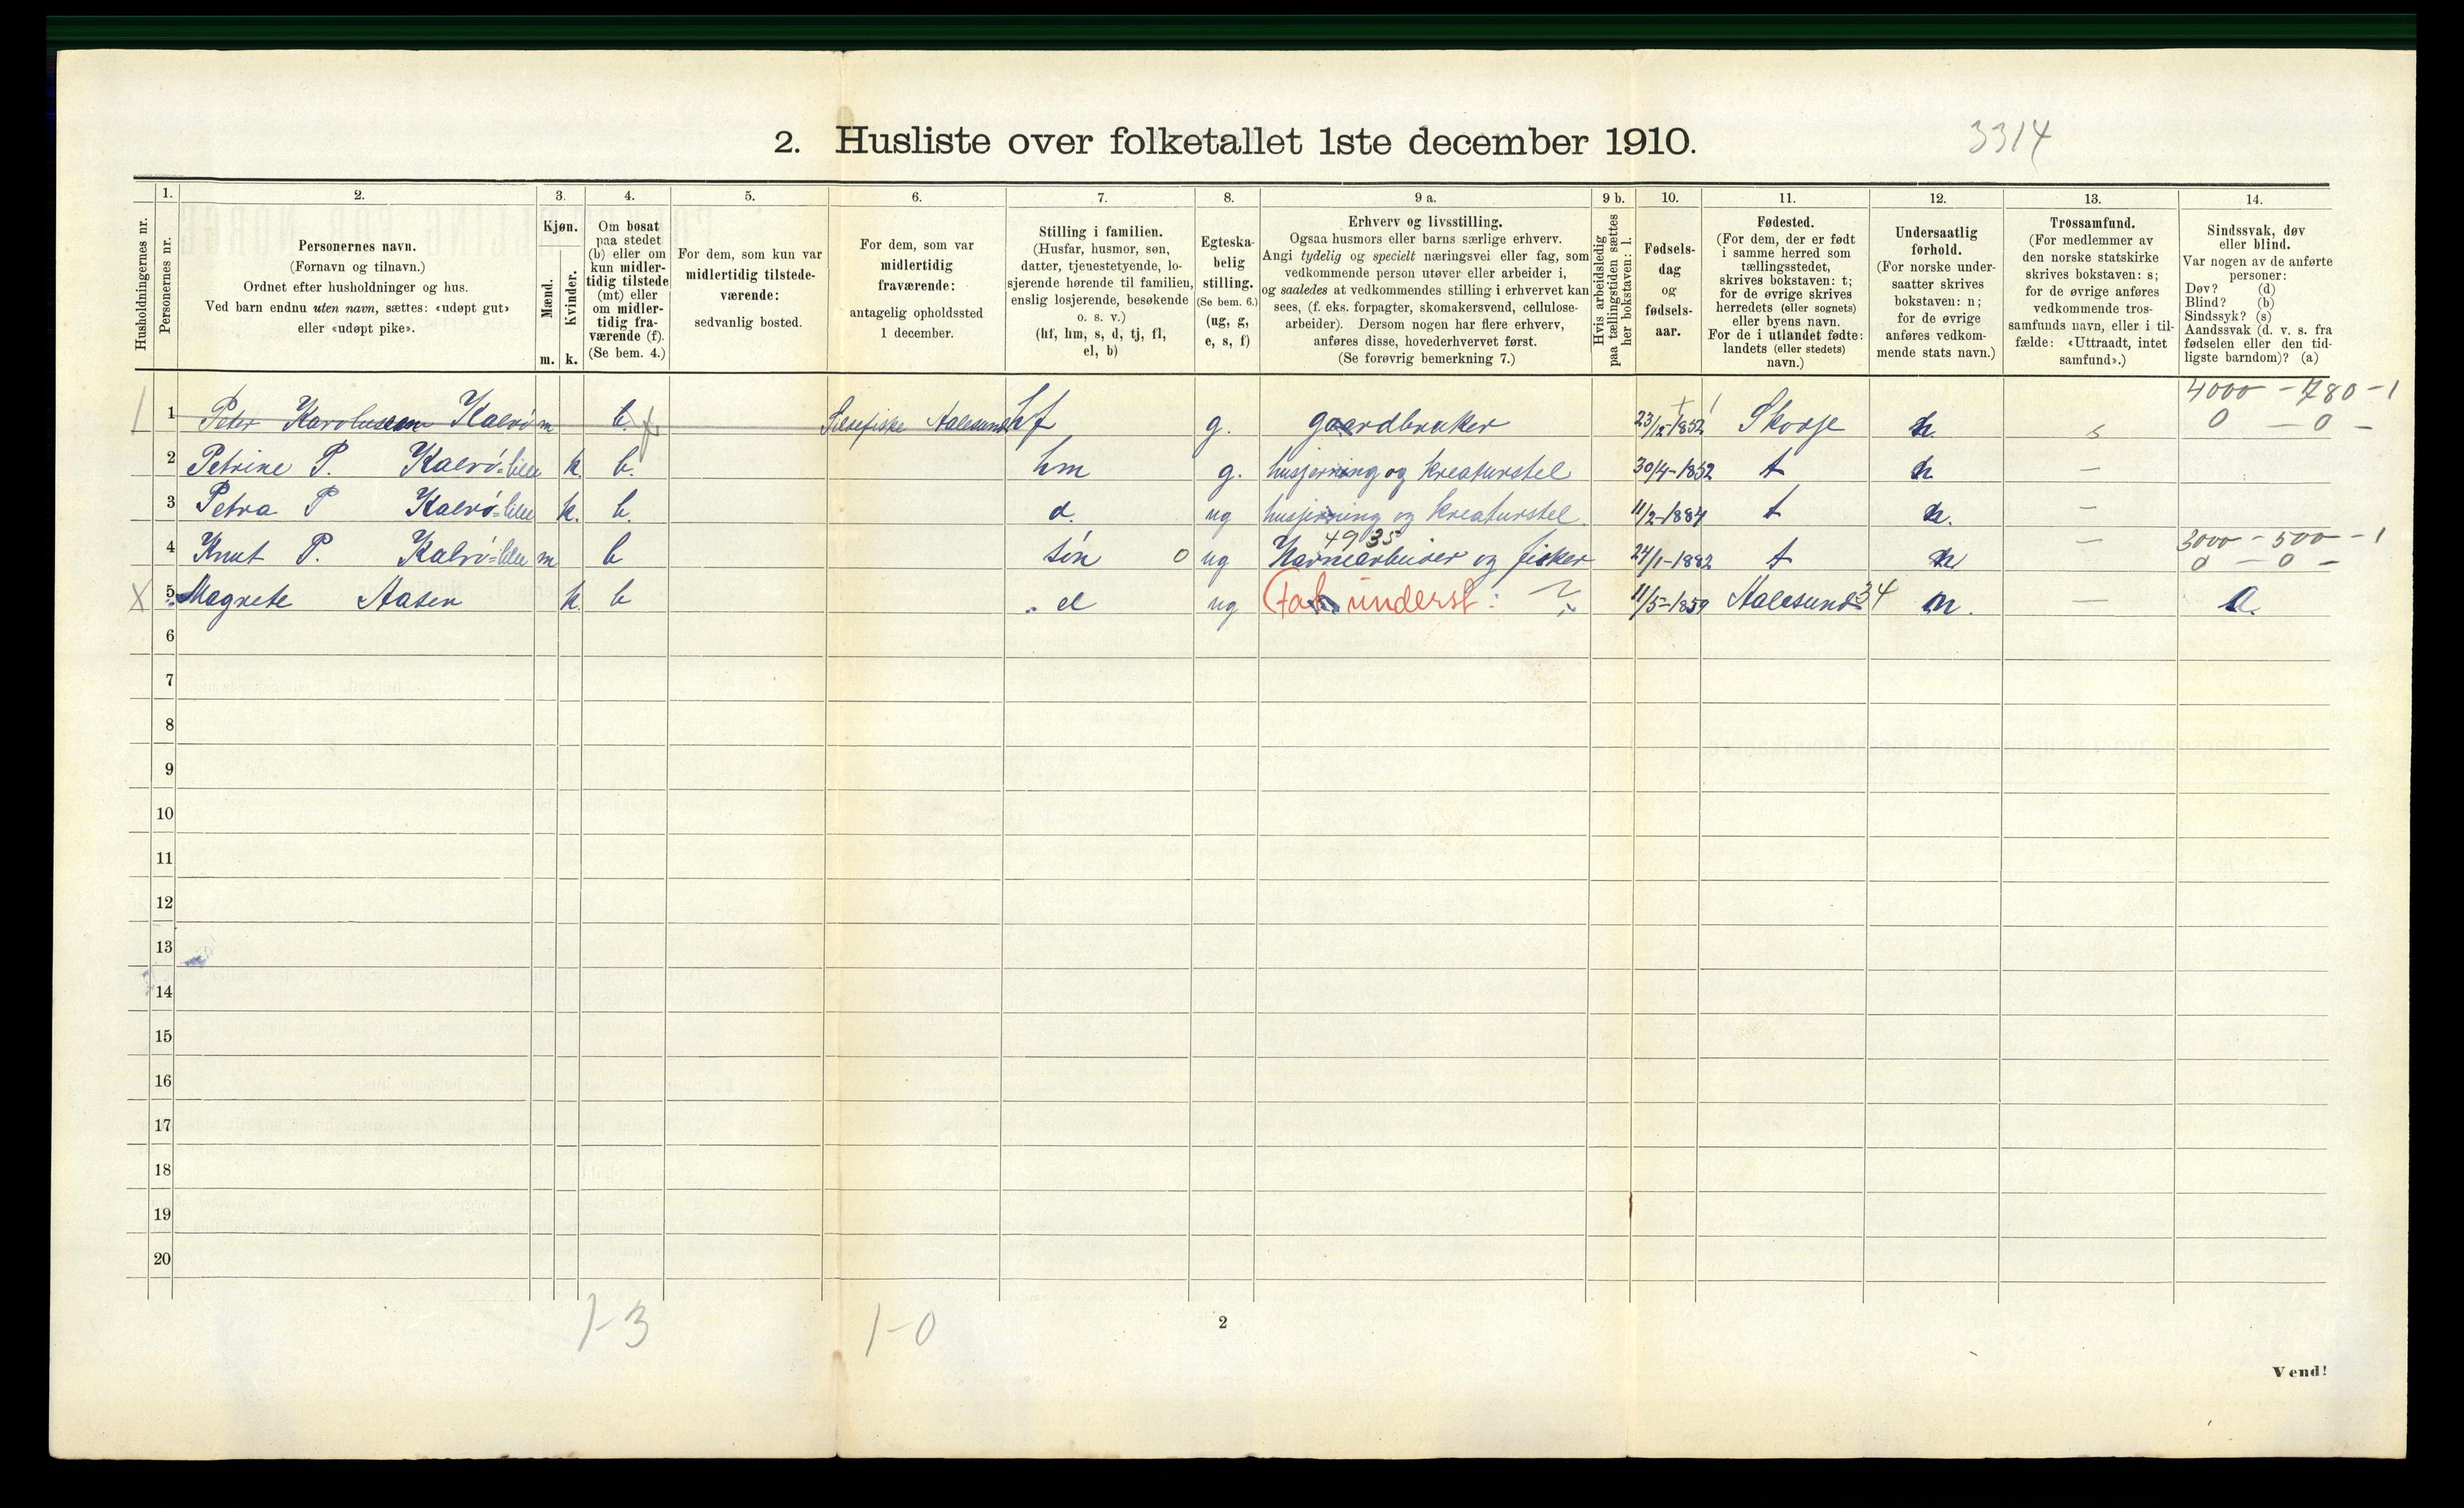 2. Husliste over folketallet 1ste december 1910.
3314
Husholdningernes nr.
1.
Personernes nr.
2.
Personernes navn.
(Fornavn og tilnavn.)
Ordnet efter husholdninger og hus.
Ved barn endnu uten navn, sættes: «udøpt gut»
eller «udøpt pike».
3.
Kjøn.
Mænd.
Kvinder.
m. k.
4.
Om bosat
paa stedet
(b) eller om
kun midler-
tidig tilstede
(mt) eller
om midler-
tidig fra-
værende (f).
(Se bem. 4.)
5.
For dem, som kun var
midlertidig tilstede-
værende:
sedvanlig bosted.
6.
For dem, som var
midlertidig
fraværende:
antagelig opholdssted
1 december.
7.
Stilling i familien.
(Husfar, husmor, søn,
datter, tjenestetyende, lo-
sjerende hørende til familien,
enslig losjerende, besøkende
o. s. v.)
(hf, hm, s, d, tj, fl,
el, b)
8.
Egteska-
belig
stilling.
(Se bem. 6.)
(ug, g,
e, s, f)
9 a.
Erhverv og livsstilling.
Ogsaa husmors eller barns særlige erhverv.
Angi tydelig og specielt næringsvei eller fag, som
vedkommende person utøver eller arbeider i,
og saaledes at vedkommendes stilling i erhvervet kan
sees, (f. eks. forpagter, skomakersvend, cellulose-
arbeider). Dersom nogen har flere erhverv,
anføres disse, hovederhvervet først.
(Se forøvrig bemerkning 7.)
9 b.
Hvis arbeidsledig
paa tællingstiden sættes
her bokstaven: l.
10.
Fødsels-
dag
og
fødsels-
aar.
11.
Fødested.
(For dem, der er født
i samme herred som
tællingsstedet,
skrives bokstaven: t;
for de øvrige skrives
herredets (eller sognets)
eller byens navn.
For de i utlandet fødte:
landets (eller stedets)
navn.)
12.
Undersaatlig
forhold.
(For norske under-
saatter skrives
bokstaven: n;
for de øvrige
anføres vedkom-
mende stats navn.)
13.
Trossamfund.
(For medlemmer av
den norske statskirke
skrives bokstaven: s;
for de øvrige anføres
vedkommende tros-
samfunds navn, eller i til-
fælde: «Uttraadt, intet
samfund».)
14.
Sindssvak, døv
eller blind.
Var nogen av de anførte
personer:
Døv? (d)
Blind? (b)
Sindssyk? (s)
Aandssvak (d. v. s. fra
fødselen eller den tid-
ligste barndom)? (a)
4000 - 780 - 1
1 Peter Karolussen Kalvø m b. x Sildefiske Aalesund hf g. gaardbruker 23/12-1852 Skorje n. s 0 - 0 -
2 Petrine P. Kalvø=lille k b. hm g. husjerning og kreaturstel 30/4-1852 t n —
3 Petra P Kalvø=lille k. b. d. ug husjerning og kreaturstel 11/2-1884 t n. —
49 35 3000 - 500 - 1
4 Knut P. Kalvø=lille m b søn 0 ug Havnearbeider og fisker 24/1-1882 t n — 0 - 0 -
X 5 Magnete Aasen k b el ug Fat. underst: 11/5-1859 Aalesund 34 n. — a.
6
7
8
9
10
11
12
13
14
15
16
17
18
19
20
1-3 1-0
2
Vend!